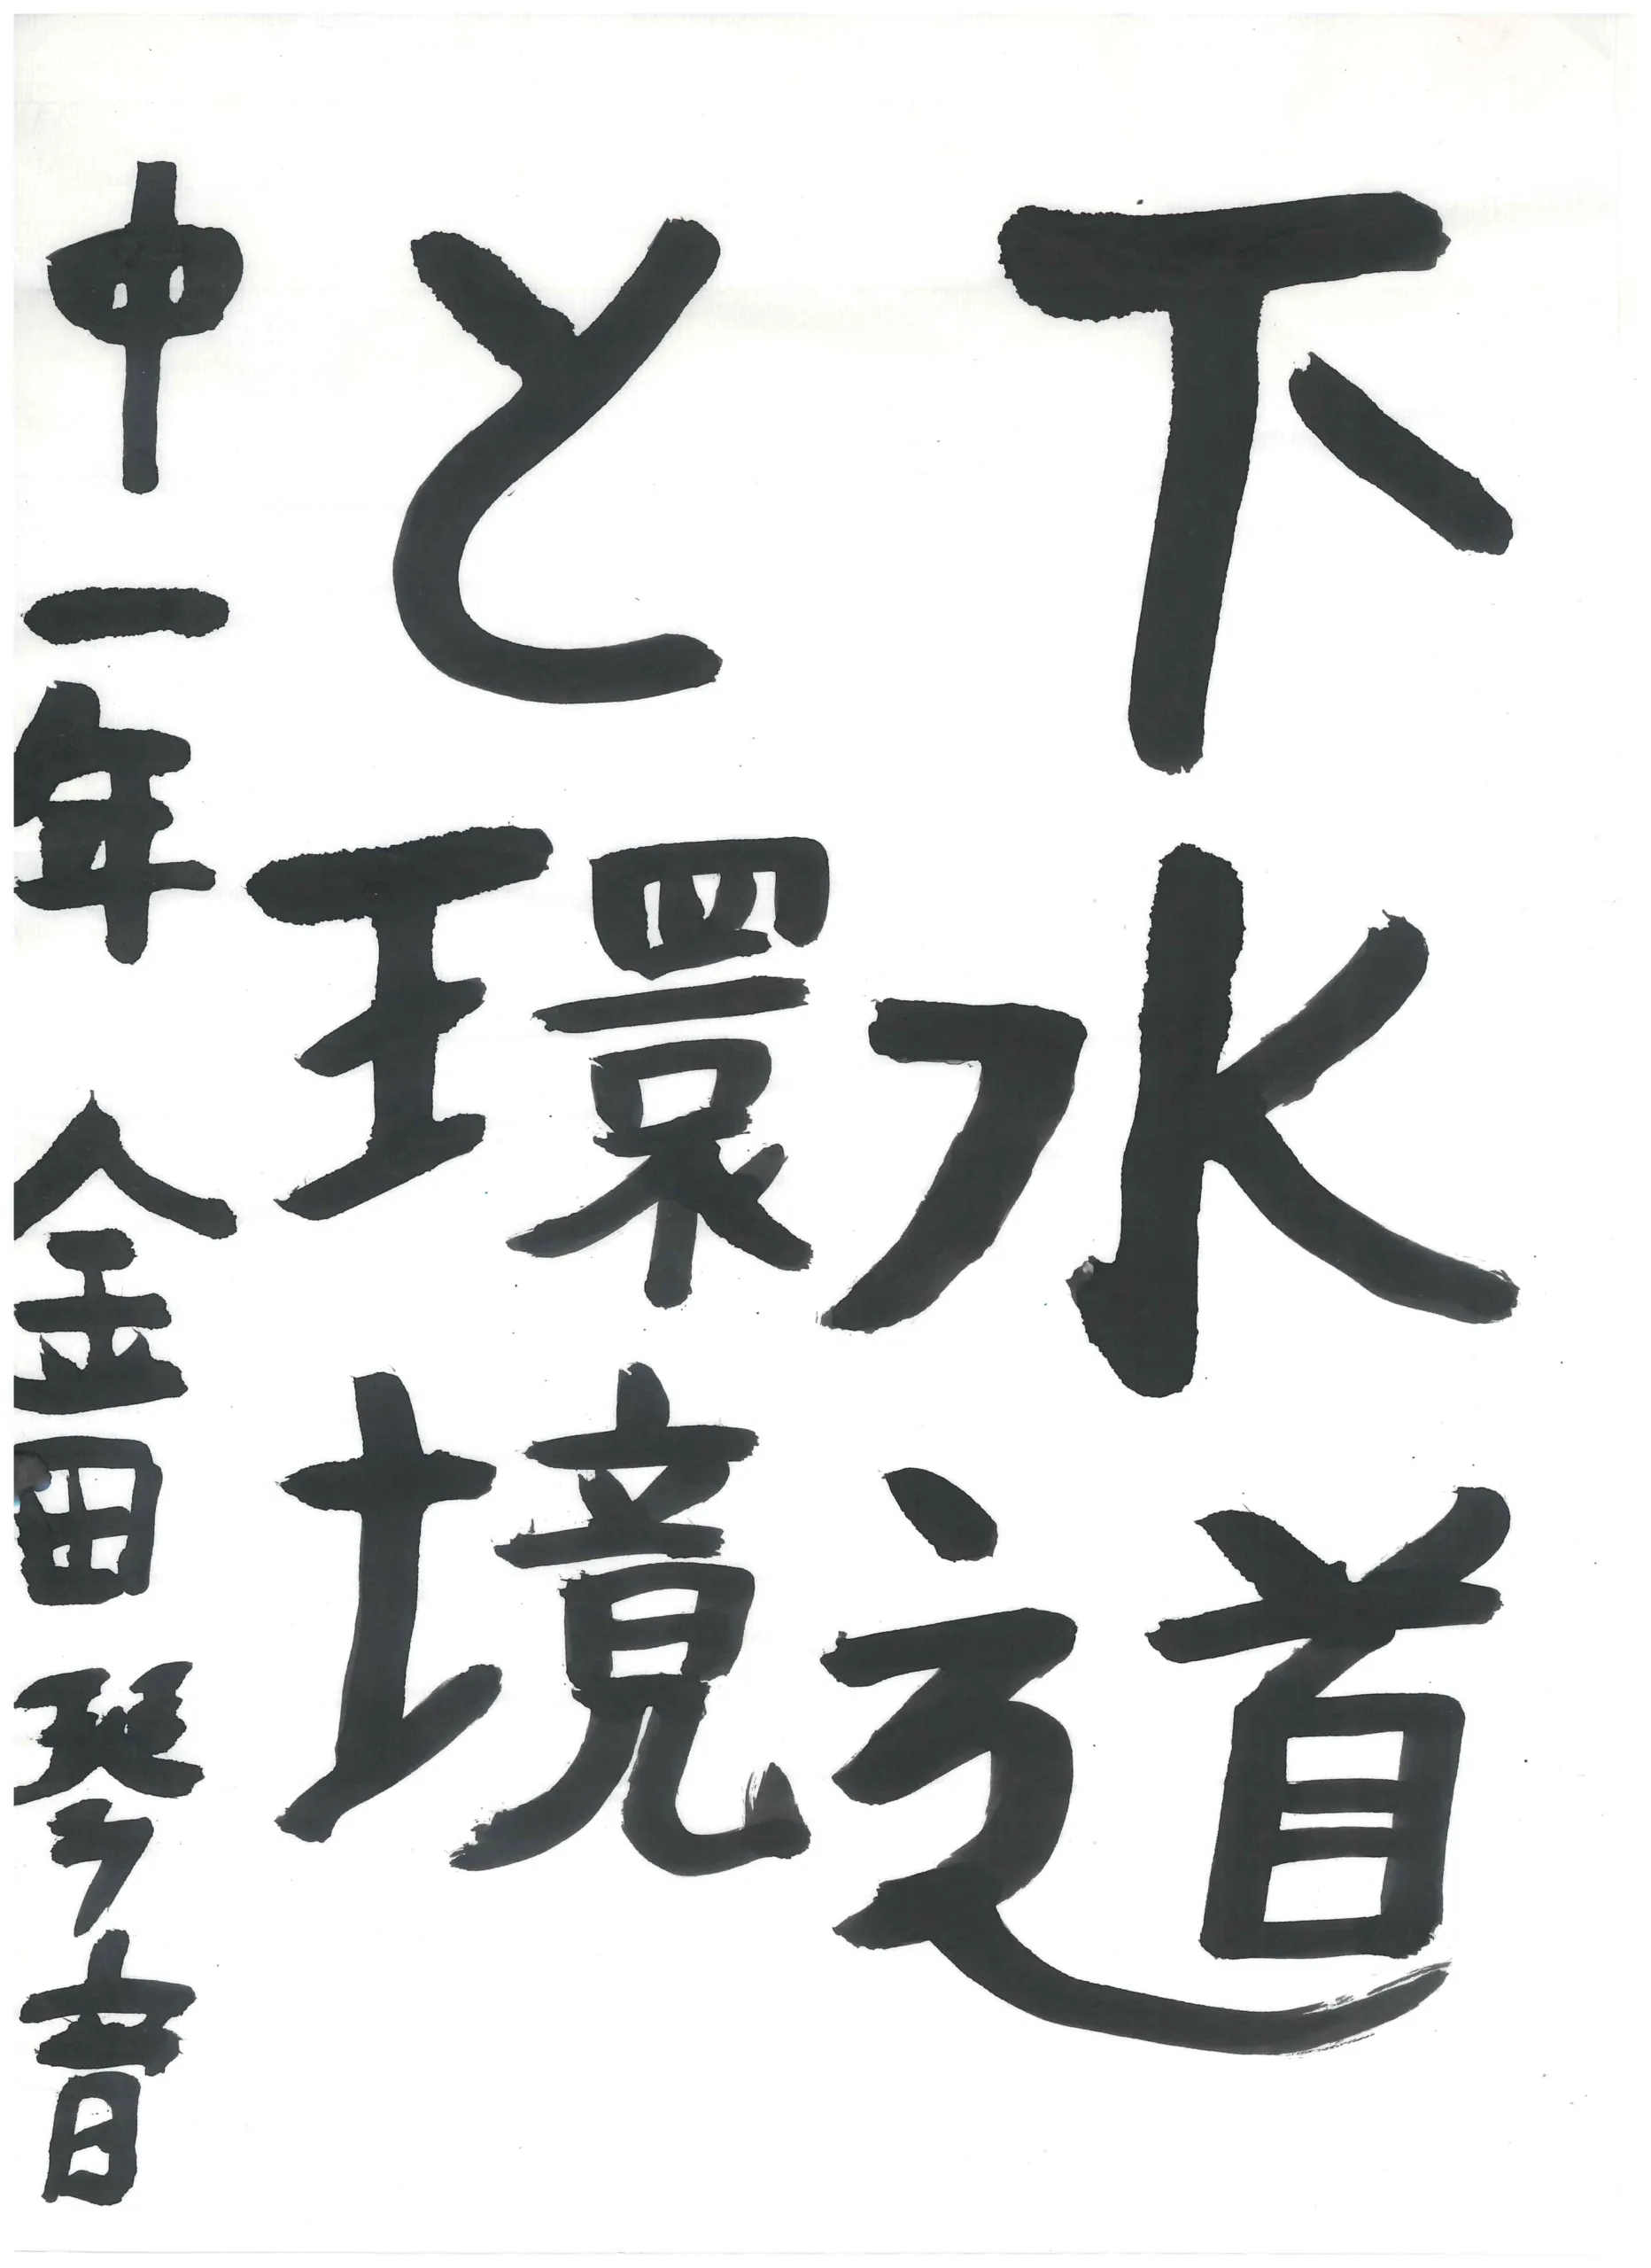 下水道
と環境
中一年 金田琴音